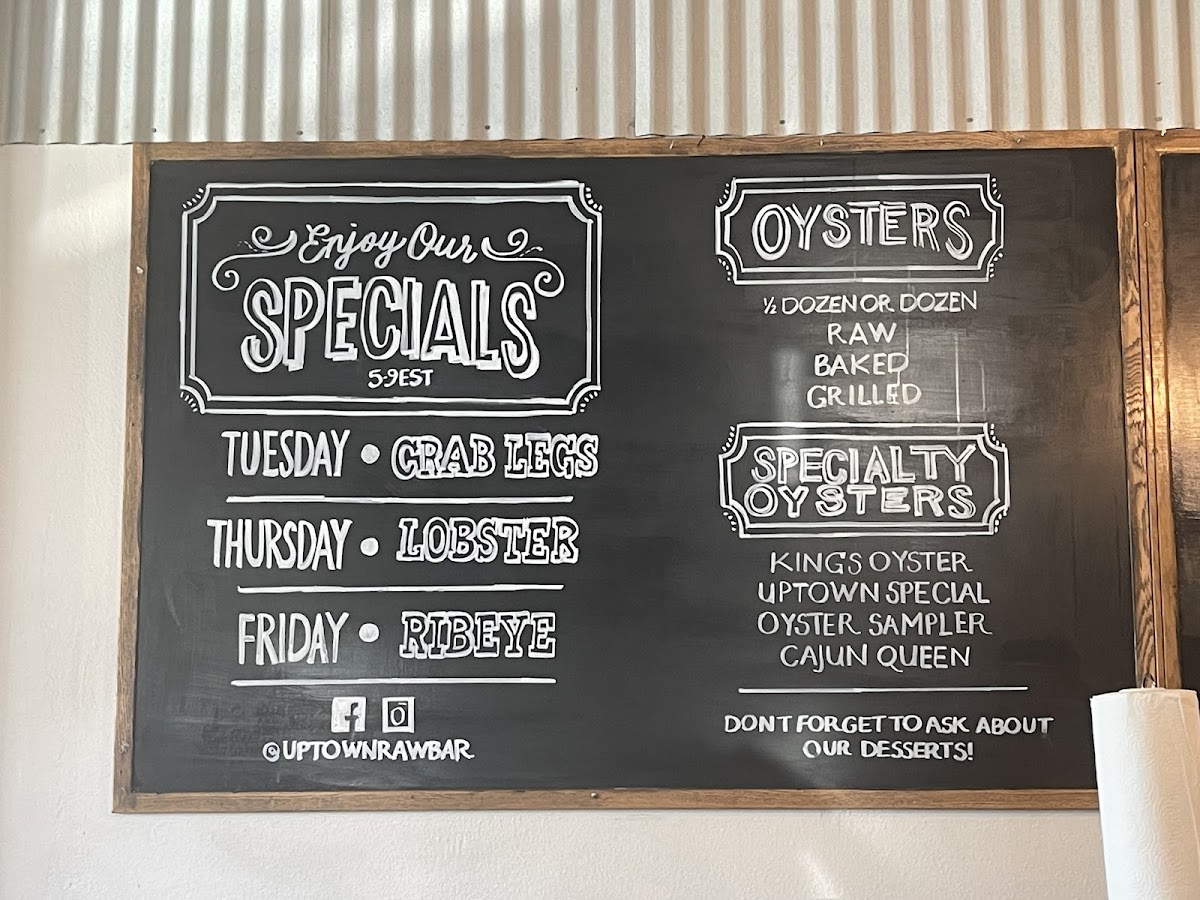 Enjoy Our
SPECIALS
5-9EST
TUESDAY • CRAB LEGS
THURSDAY • LOBSTER
FRIDAY • RIBEYE
@UPTOWNRAWBAR
OYSTERS
½ DOZEN OR DOZEN
RAW
BAKED
GRILLED
SPECIALTY
OYSTERS
KING'S OYSTER
UPTOWN SPECIAL
OYSTER SAMPLER
CAJUN QUEEN
DON'T FORGET TO ASK ABOUT
OUR DESSERTS!